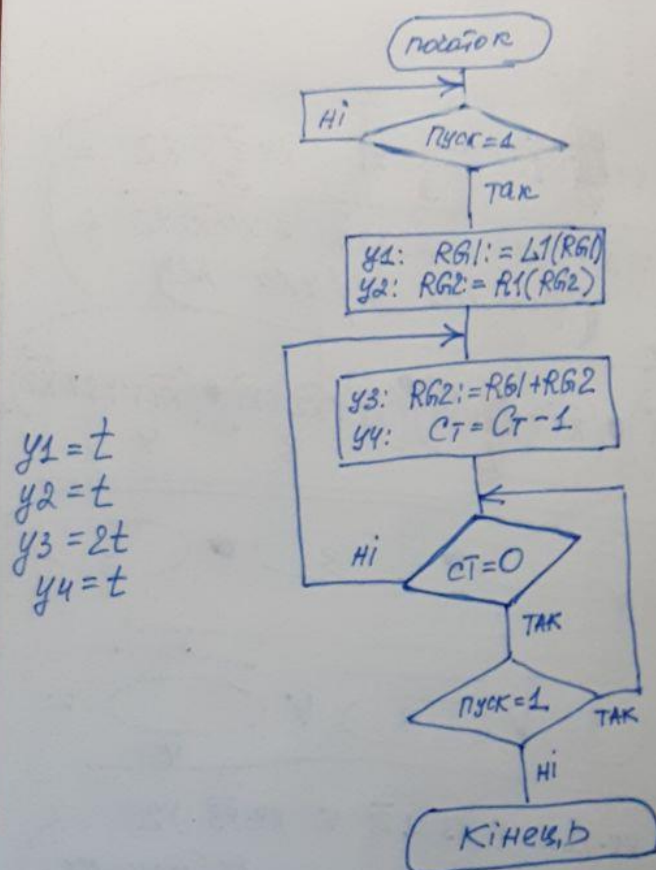 початок
Ні
Пуск=1
Так
y1: RG1:= L1(RG1)
y2: RG2:= R1(RG2)
y3: RG2:=RG1+RG2
y4: Ст=Ст-1
y1=t
y2=t
y3=2t
y4=t
Ні
СТ=0
ТАК
Пуск=1
ТАК
Ні
Кінець